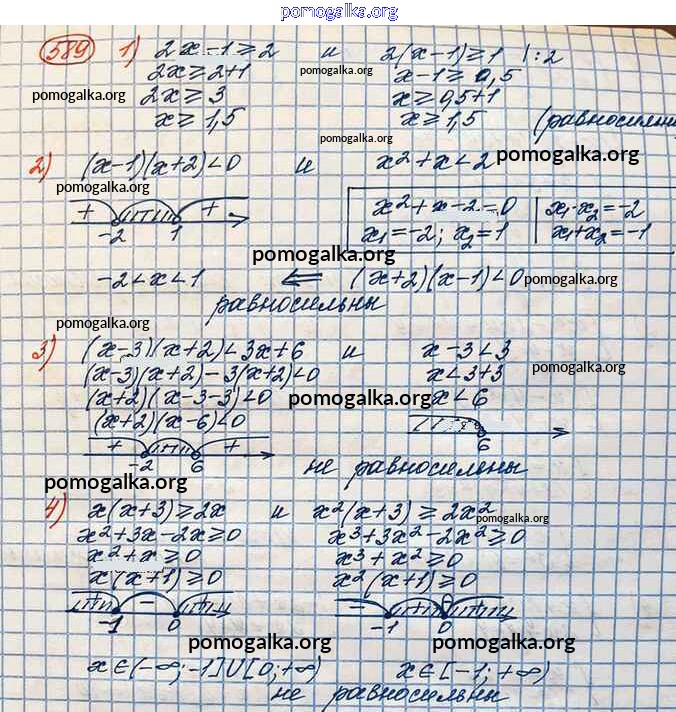 pomogalka.org
589 1) 2x-1≥2 и 2(x-1)≥1 |:2
2x≥2+1 x-1≥0,5
pomogalka.org
pomogalka.org 2x≥3 x≥0,5+1
x≥1,5 x≥1,5 (равносильны
pomogalka.org
2) (x-1)(x+2)<0 и x²+x<2 pomogalka.org
pomogalka.org
+ + x²+x-2=0 x₁·x₂=-2
-2 1 x₁=-2; x₂=1 x₁+x₂=-1
pomogalka.org
-2<x<1 ⇐ (x+2)(x-1)<0 pomogalka.org
равносильны
pomogalka.org
3) (x-3)(x+2)<3x+6 и x-3<3
(x-3)(x+2)-3(x+2)<0 x<3+3 pomogalka.org
(x+2)(x-3-3)<0 pomogalka.org x<6
(x+2)(x-6)<0
+ +
-2 6 6
не равносильны
pomogalka.org
4) x(x+3)≥2x и x²(x+3)≥2x²
pomogalka.org
x²+3x-2x≥0 x³+3x²-2x²≥0
x²+x≥0 x³+x²≥0
x(x+1)≥0 x²(x+1)≥0
+ - + - + +
-1 0 -1 0
pomogalka.org pomogalka.org
x∈(-∞;-1]U[0;+∞) x∈[-1;+∞)
не равносильны